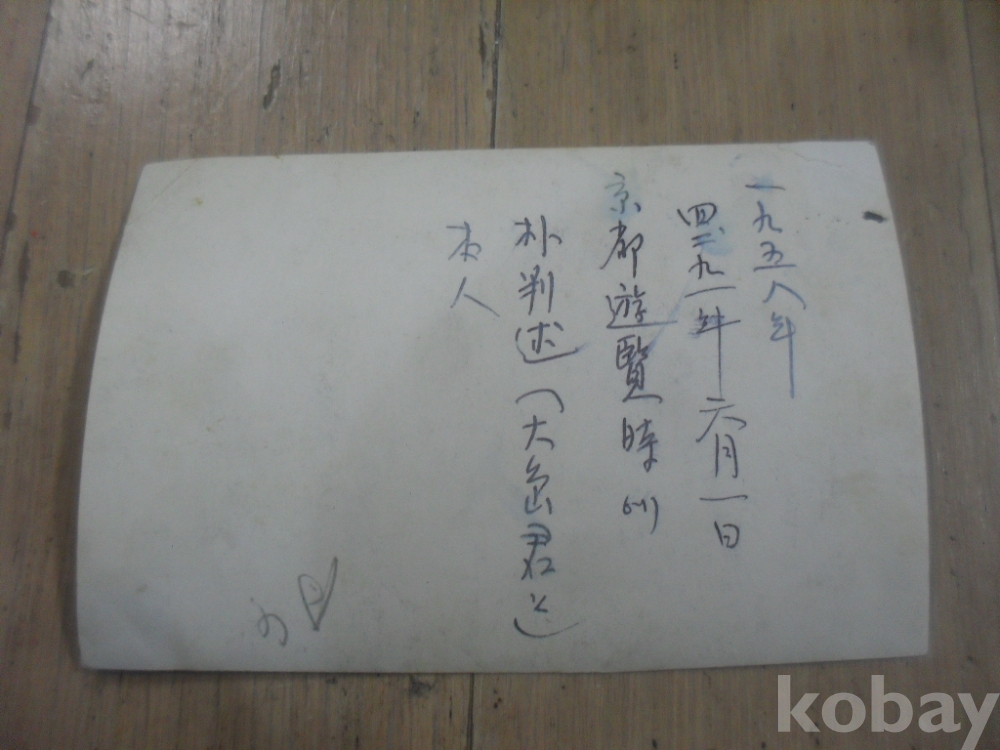 一九五八年
四二九一年 六月一日
京都遊覽時에
朴判述(大島君と)
本人
kobay